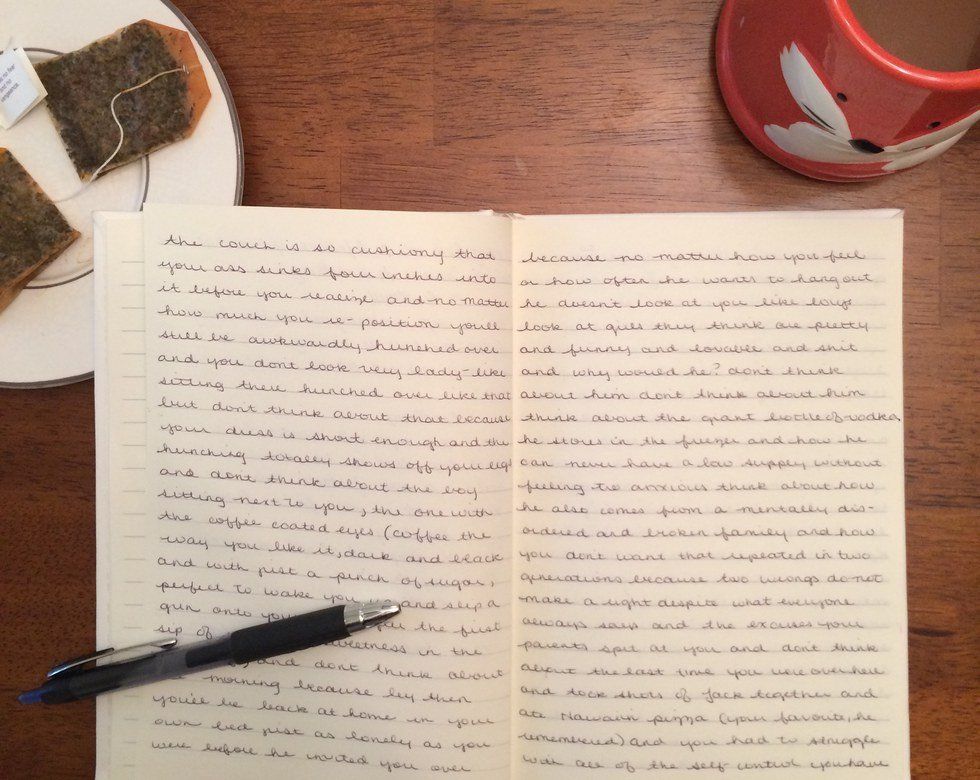 no fear
and no
vengeance.
the couch is so cushiony that
your ass sinks four inches into
it before you realize and no matter
how much you re-position you'll
still be awkwardly hunched over
and you dont look very lady-like
sitting there hunched over like that
but don't think about that because
your dress is short enough and the
hunching totally shows off your legs
and dont think about the boy
sitting next to you, the one with
the coffee coated eyes (coffee the
way you like it, dark and black
and with just a pinch of sugar,
perfect to wake you up and slip a
grin onto your the first
sip of sweetness in the
and dont think about
morning because by then
you'll be back at home in your
own bed just as lonely as you
were before he invited you over
because no matter how you feel
or how often he wants to hang out
he doesn't look at you like boys
look at girls they think are pretty
and funny and lovable and shit
and why would he? don't think
about him dont think about him
think about the giant bottle of vodka
he stores in the freezer and how he
can never have a low supply without
feeling too anxious think about how
he also comes from a mentally dis-
ordered and broken family and how
you don't want that repeated in two
generations because two wrongs do not
make a right despite what everyone
always says and the excuses your
parents spit at you and dont think
about the last time you were over here
and took shots of Jack together and
ate Hawaiin pizza (your favorite, he
remembered) and you had to struggle
with all of the self control you have